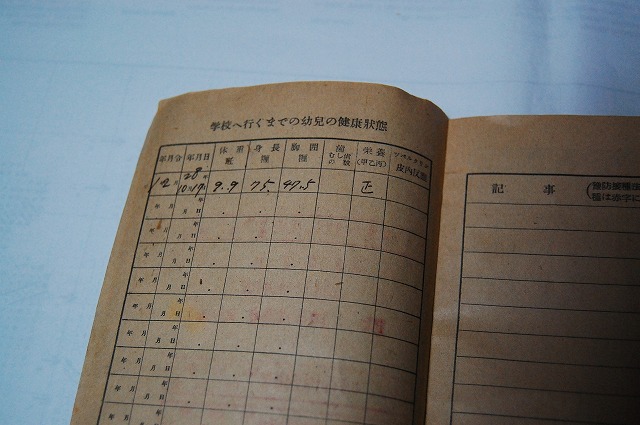 学校へ行くまでの幼兒の健康狀態
年月令 年月日 体重 瓩 身長 糎 胸囲 糎 むし歯の数 栄養(甲乙丙) ツベルクリン皮内反應
1年2月 28年10月17日 9.9 75. 47.5 正
年月 年月日
年月 年月日
年月 年月日
年月 年月日
年月 年月日
年月 年月日
年月 年月日
年月 年月日
記事